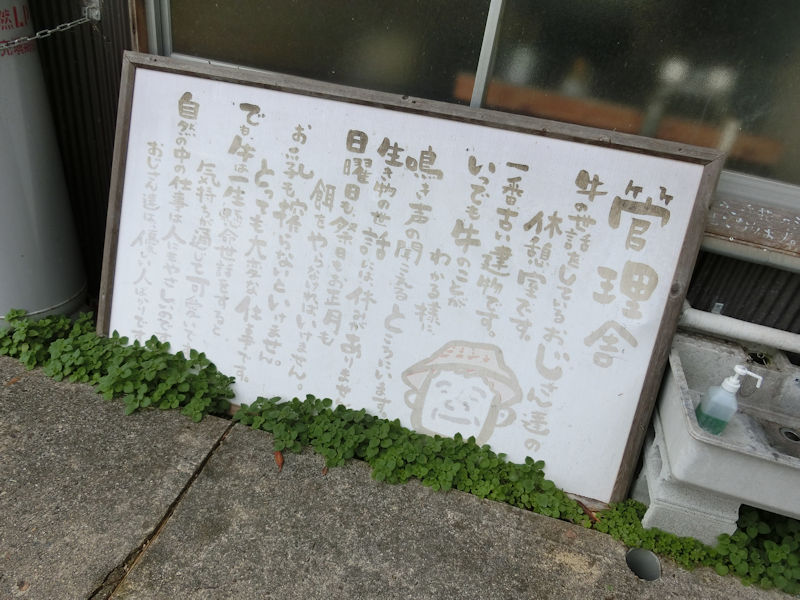 管理舎
牛の世話をしているおじさん達の
休憩室です。
一番古い建物です。
いつでも牛のことが
わかる様に
鳴き声の聞こえるところにいます
生き物の世話には休みがありません
日曜日も祭日もお正月も
餌をやらなければいけません。
お乳も搾らないといけません。
とっても大変な仕事です。
でも牛は一生懸命世話をすると
気持ちが通じて可愛いです
自然の中の仕事は人にもやさしいので
おじさん達は、優しい人ばかりです